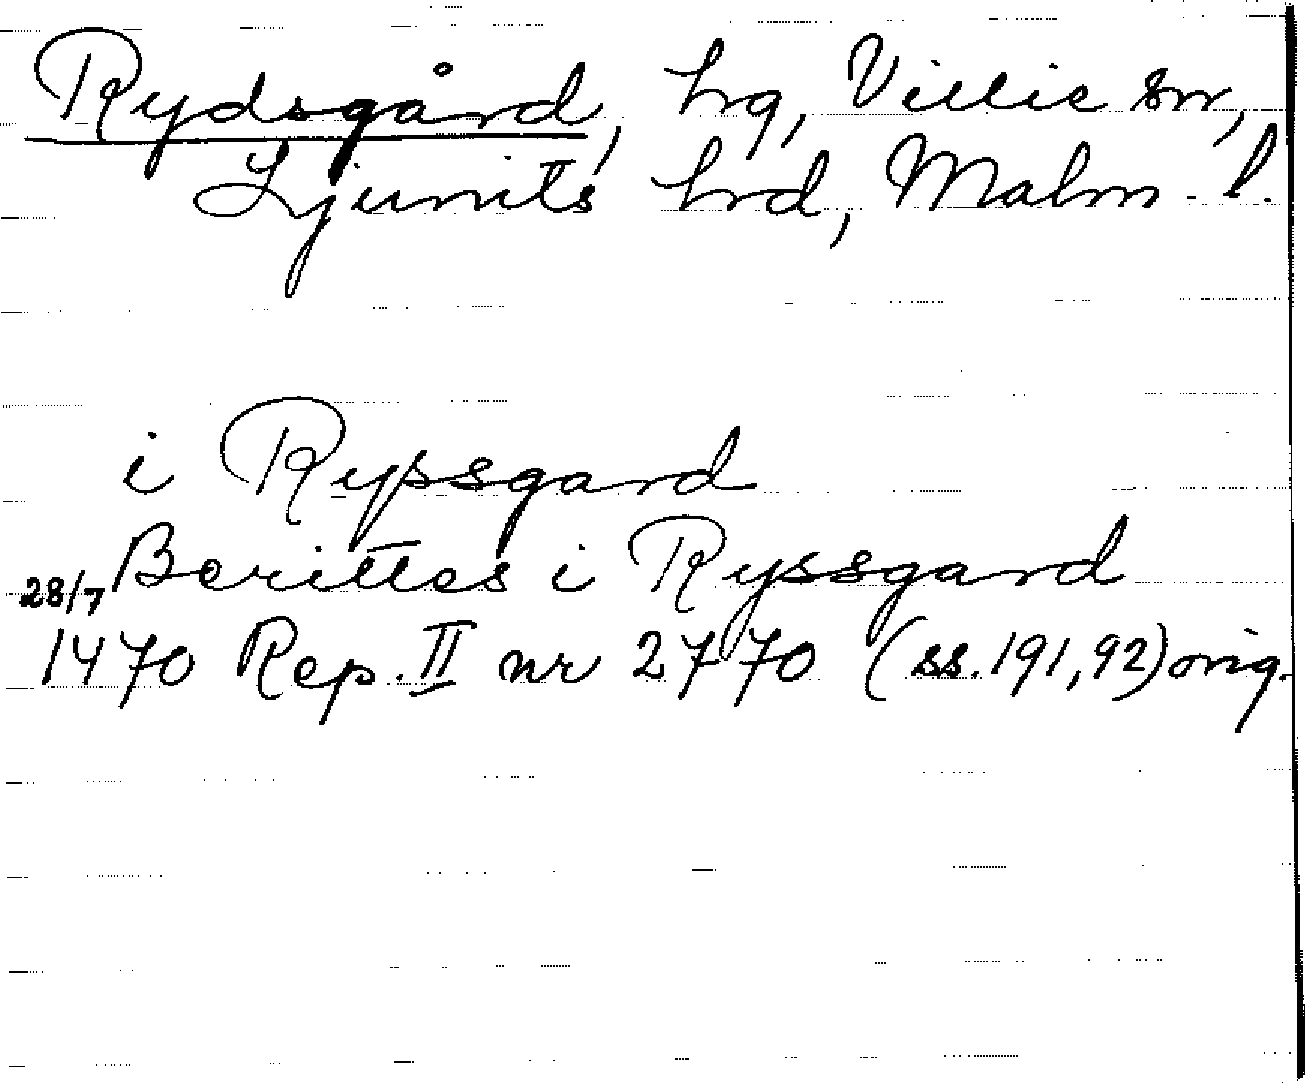 Rydsgård, hg, Villie sn,
Ljunits hrd, Malm. l.
i Rypsgard
Berittes i Ryssgard
28/7
1470 Rep. II nr 2770 (ss. 191, 92) orig.